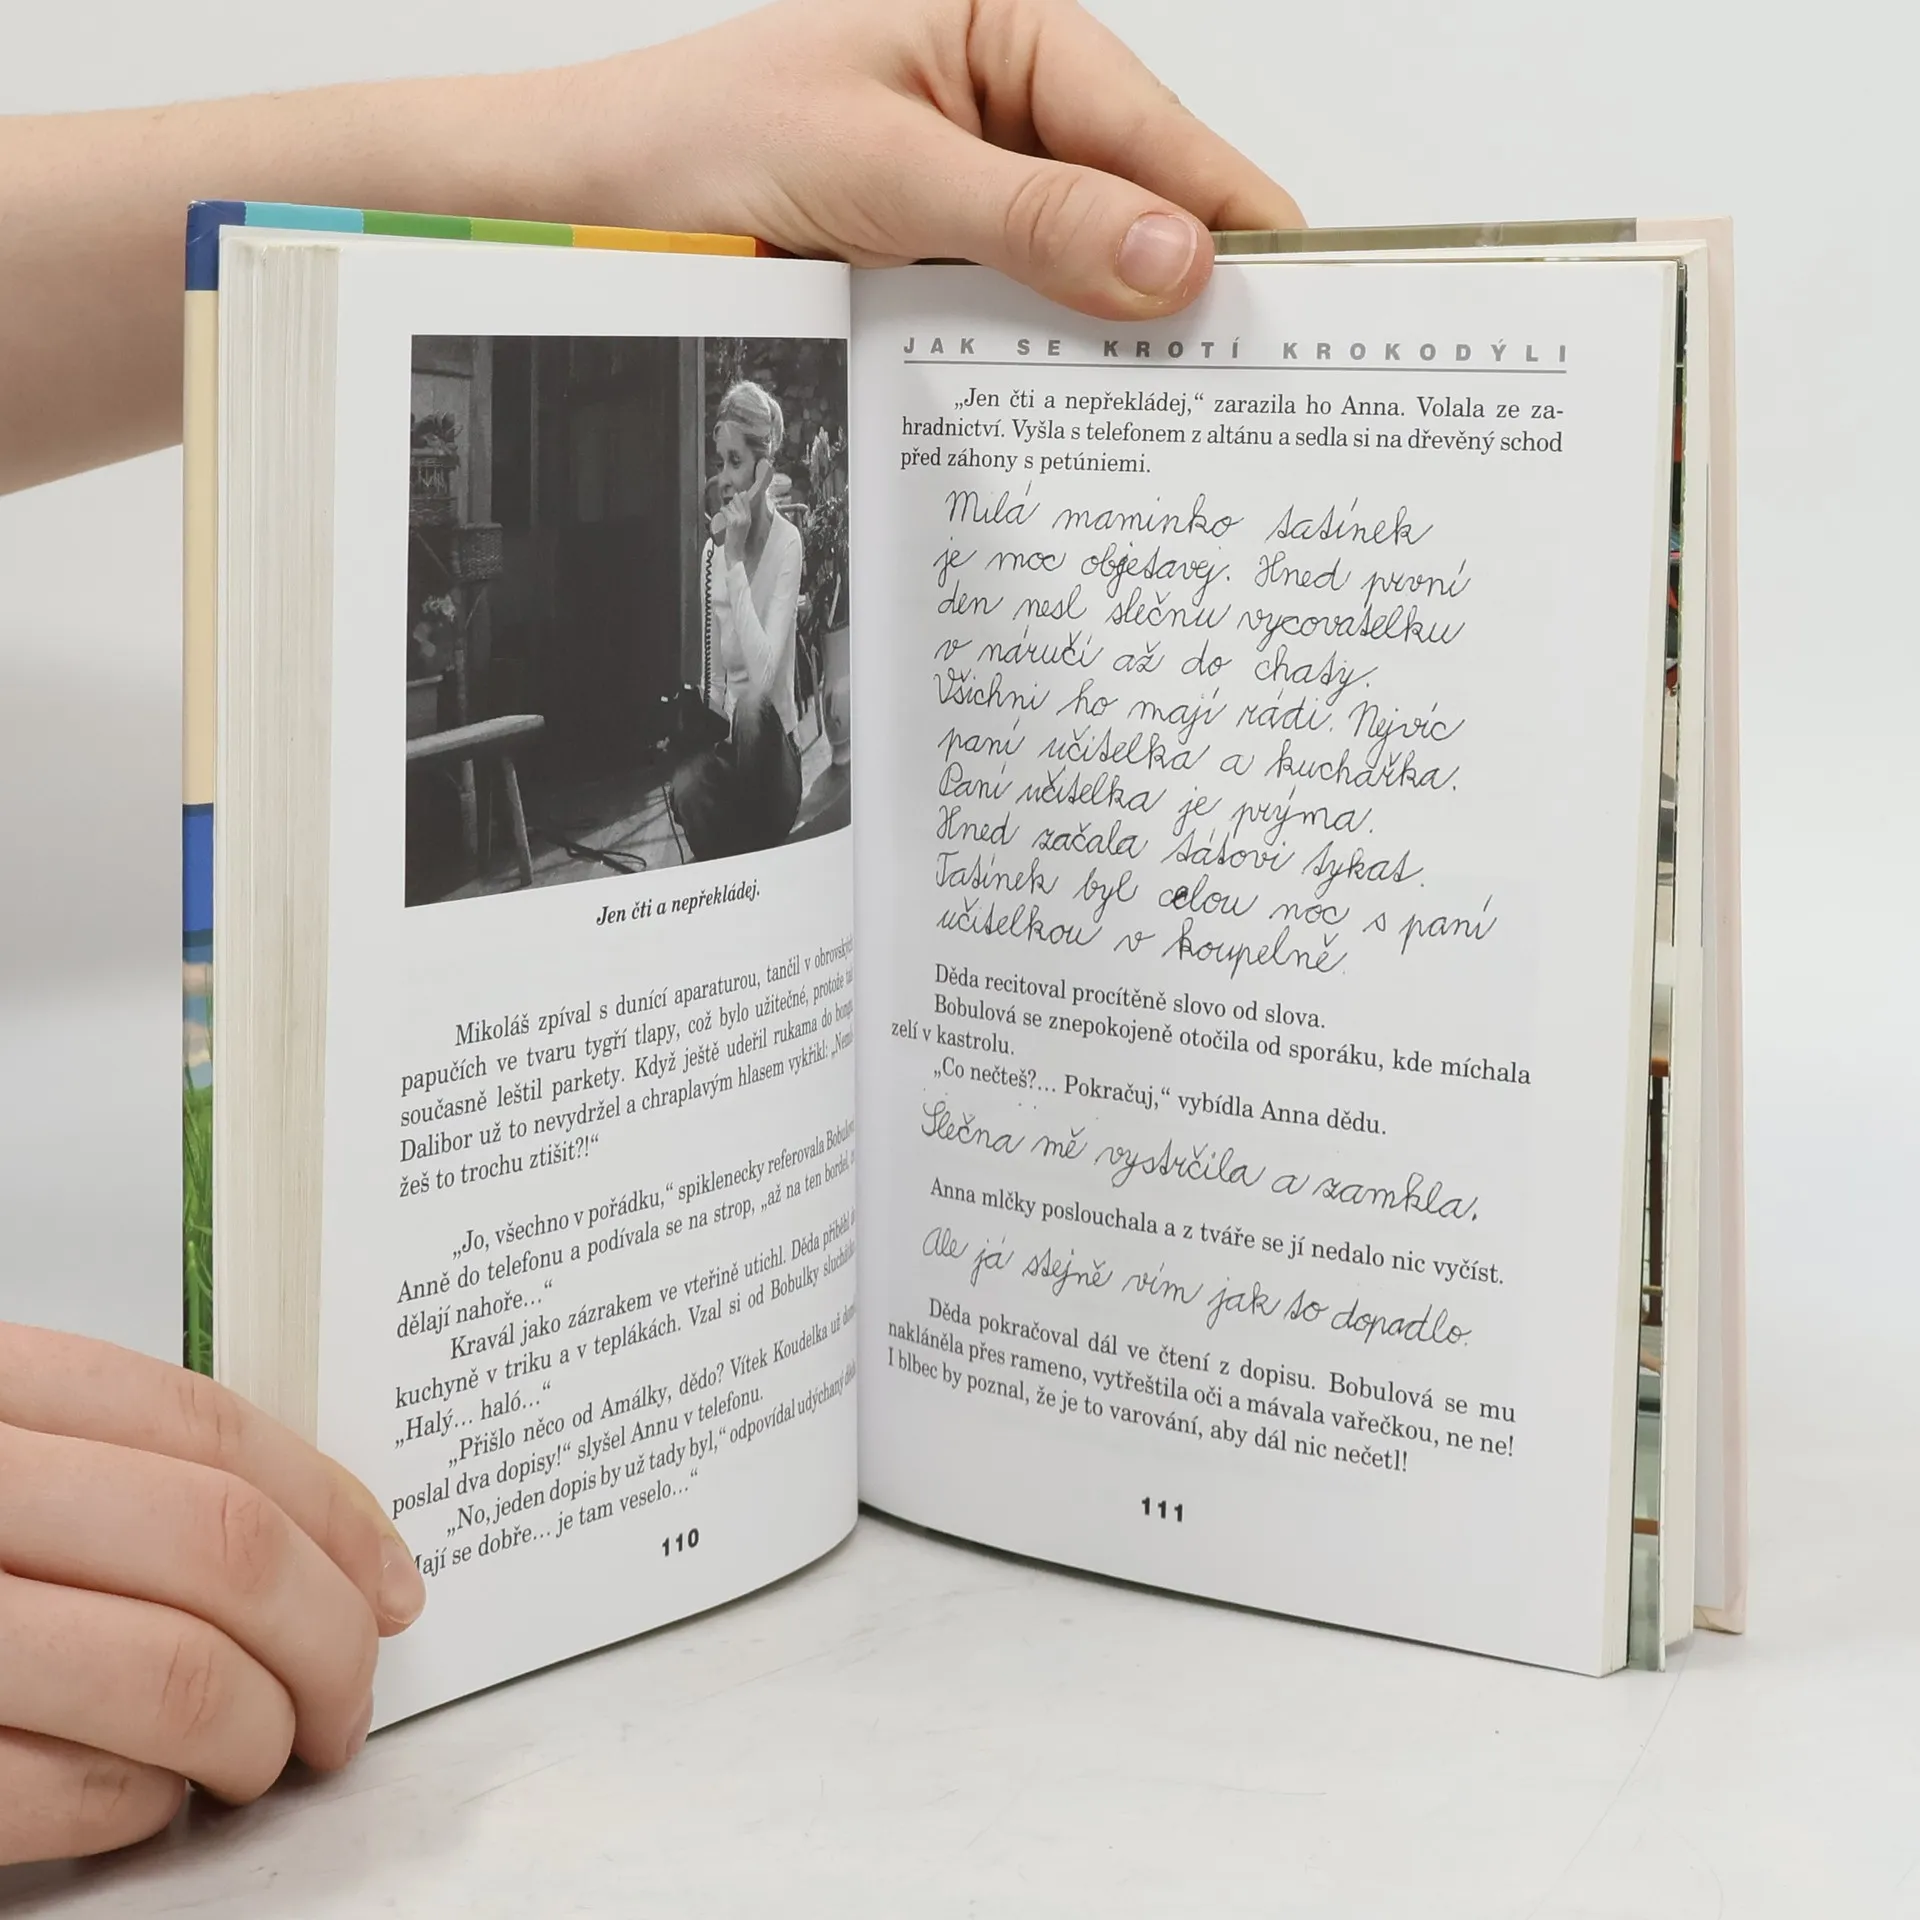 Jen čti a nepřekládej.
Mikoláš zpíval s dunící aparaturou, tančil v obrovských
papučích ve tvaru tygří tlapy, což bylo užitečné, protože
současně leštil parkety. Když ještě udeřil rukama do
Dalibor už to nevydržel a chraplavým hlasem vykřikl:
žeš to trochu ztišit?!“
„Jo, všechno v pořádku,“ spiklenecky referovala
Anně do telefonu a podívala se na strop, „až na ten bordel,
dělají nahoře…“
Kravál jako zázrakem ve vteřině utichl. Děda přiběhl
kuchyně v triku a v teplákách. Vzal si od Bobulky
„Halý… haló…“
„Přišlo něco od Amálky, dědo? Vítek Koudelka už
poslal dva dopisy!“ slyšel Annu v telefonu.
„No, jeden dopis by už tady byl,“ odpovídal udýchaný
ají se dobře… je tam veselo…“
110
JAK SE KROTÍ KROKODÝLI
„Jen čti a nepřekládej,“ zarazila ho Anna. Volala ze za-
hradnictví. Vyšla s telefonem z altánu a sedla si na dřevěný schod
před záhony s petúniemi.
Milá maminko tatínek
je moc objetavej. Hned první
den nesl slečnu vycovatelku
v náručí až do chaty.
Všichni ho mají rádi. Nejvíc
paní učitelka a kuchařka.
Paní učitelka je prýma.
Hned začala tátovi tykat.
Tatínek byl celou noc s paní
učitelkou v koupelně.
Děda recitoval procítěně slovo od slova.
Bobulová se znepokojeně otočila od sporáku, kde míchala
zelí v kastrolu.
„Co nečteš?… Pokračuj,“ vybídla Anna dědu.
Slečna mě vystrčila a zamkla.
Anna mlčky poslouchala a z tváře se jí nedalo nic vyčíst.
Ale já stejně vím jak to dopadlo.
Děda pokračoval dál ve čtení z dopisu. Bobulová se mu
nakláněla přes rameno, vytřeštila oči a mávala vařečkou, ne ne!
I blbec by poznal, že je to varování, aby dál nic nečetl!
111